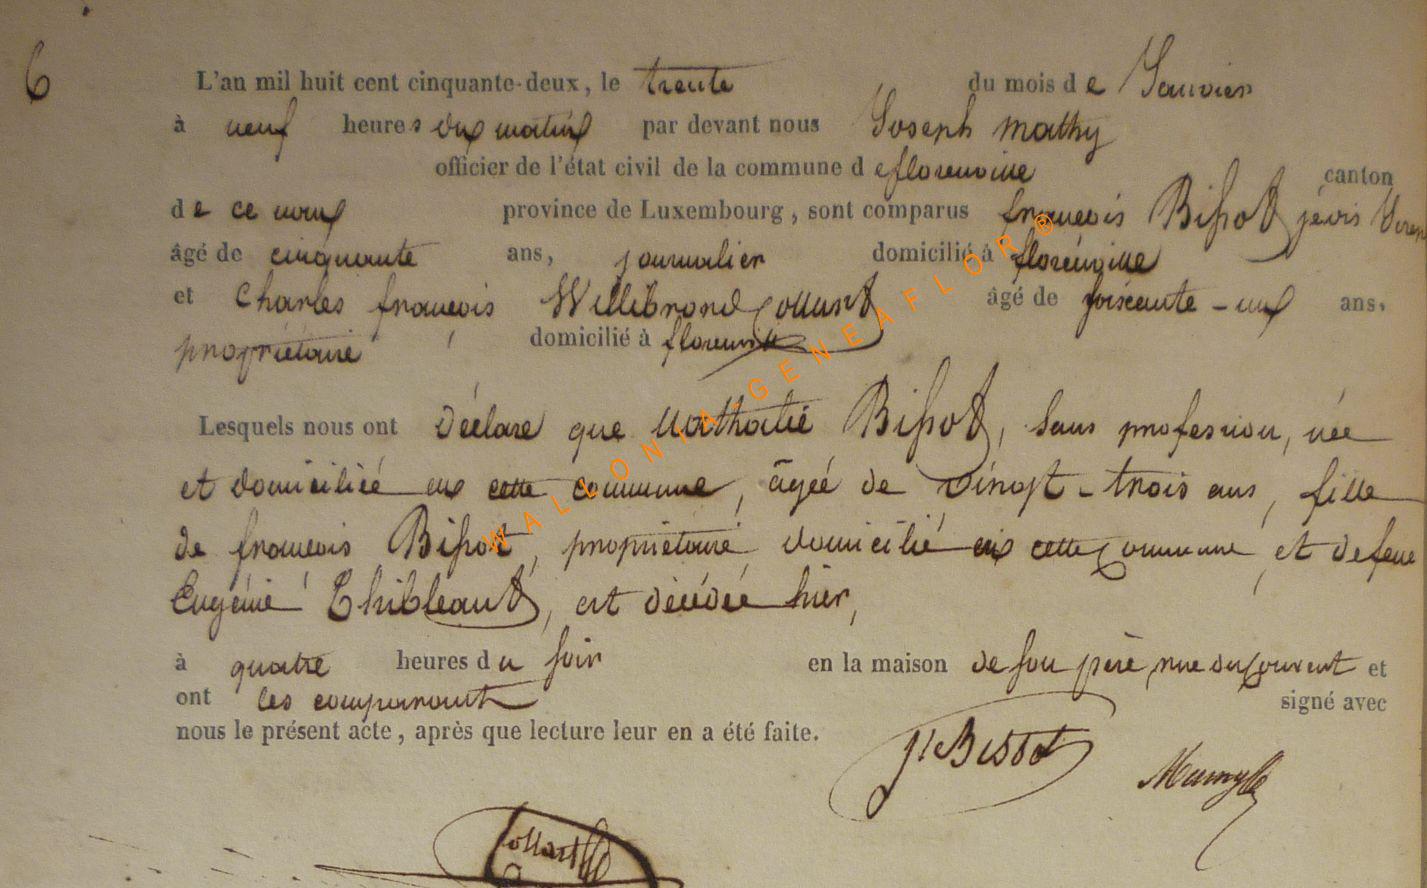 6
L'an mil huit cent cinquante-deux, le trente du mois de Janvier
à neuf heures du matin par devant nous Joseph Mathy
officier de l'état civil de la commune de florenville canton
de ce nom province de Luxembourg, sont comparus françois Bissot
âgé de cinquante ans, journalier domicilié à florenville
et Charles françois Willibrord Collart âgé de soixante-un ans,
propriétaire, domicilié à florenville
Lesquels nous ont déclaré que Nathalie Bissot, sans profession, née
et domiciliée en cette commune, âgée de vingt-trois ans, fille
de françois Bissot, propriétaire, domicilié en cette commune, et de feue
Eugénie Thibleaut, est décédée hier,
à quatre heures du soir en la maison de son père, rue du Couvent et
ont les comparants signé avec
nous le présent acte, après que lecture leur en a été faite.
Bissot
Collart
WALLONIA-GENEAFLOR®